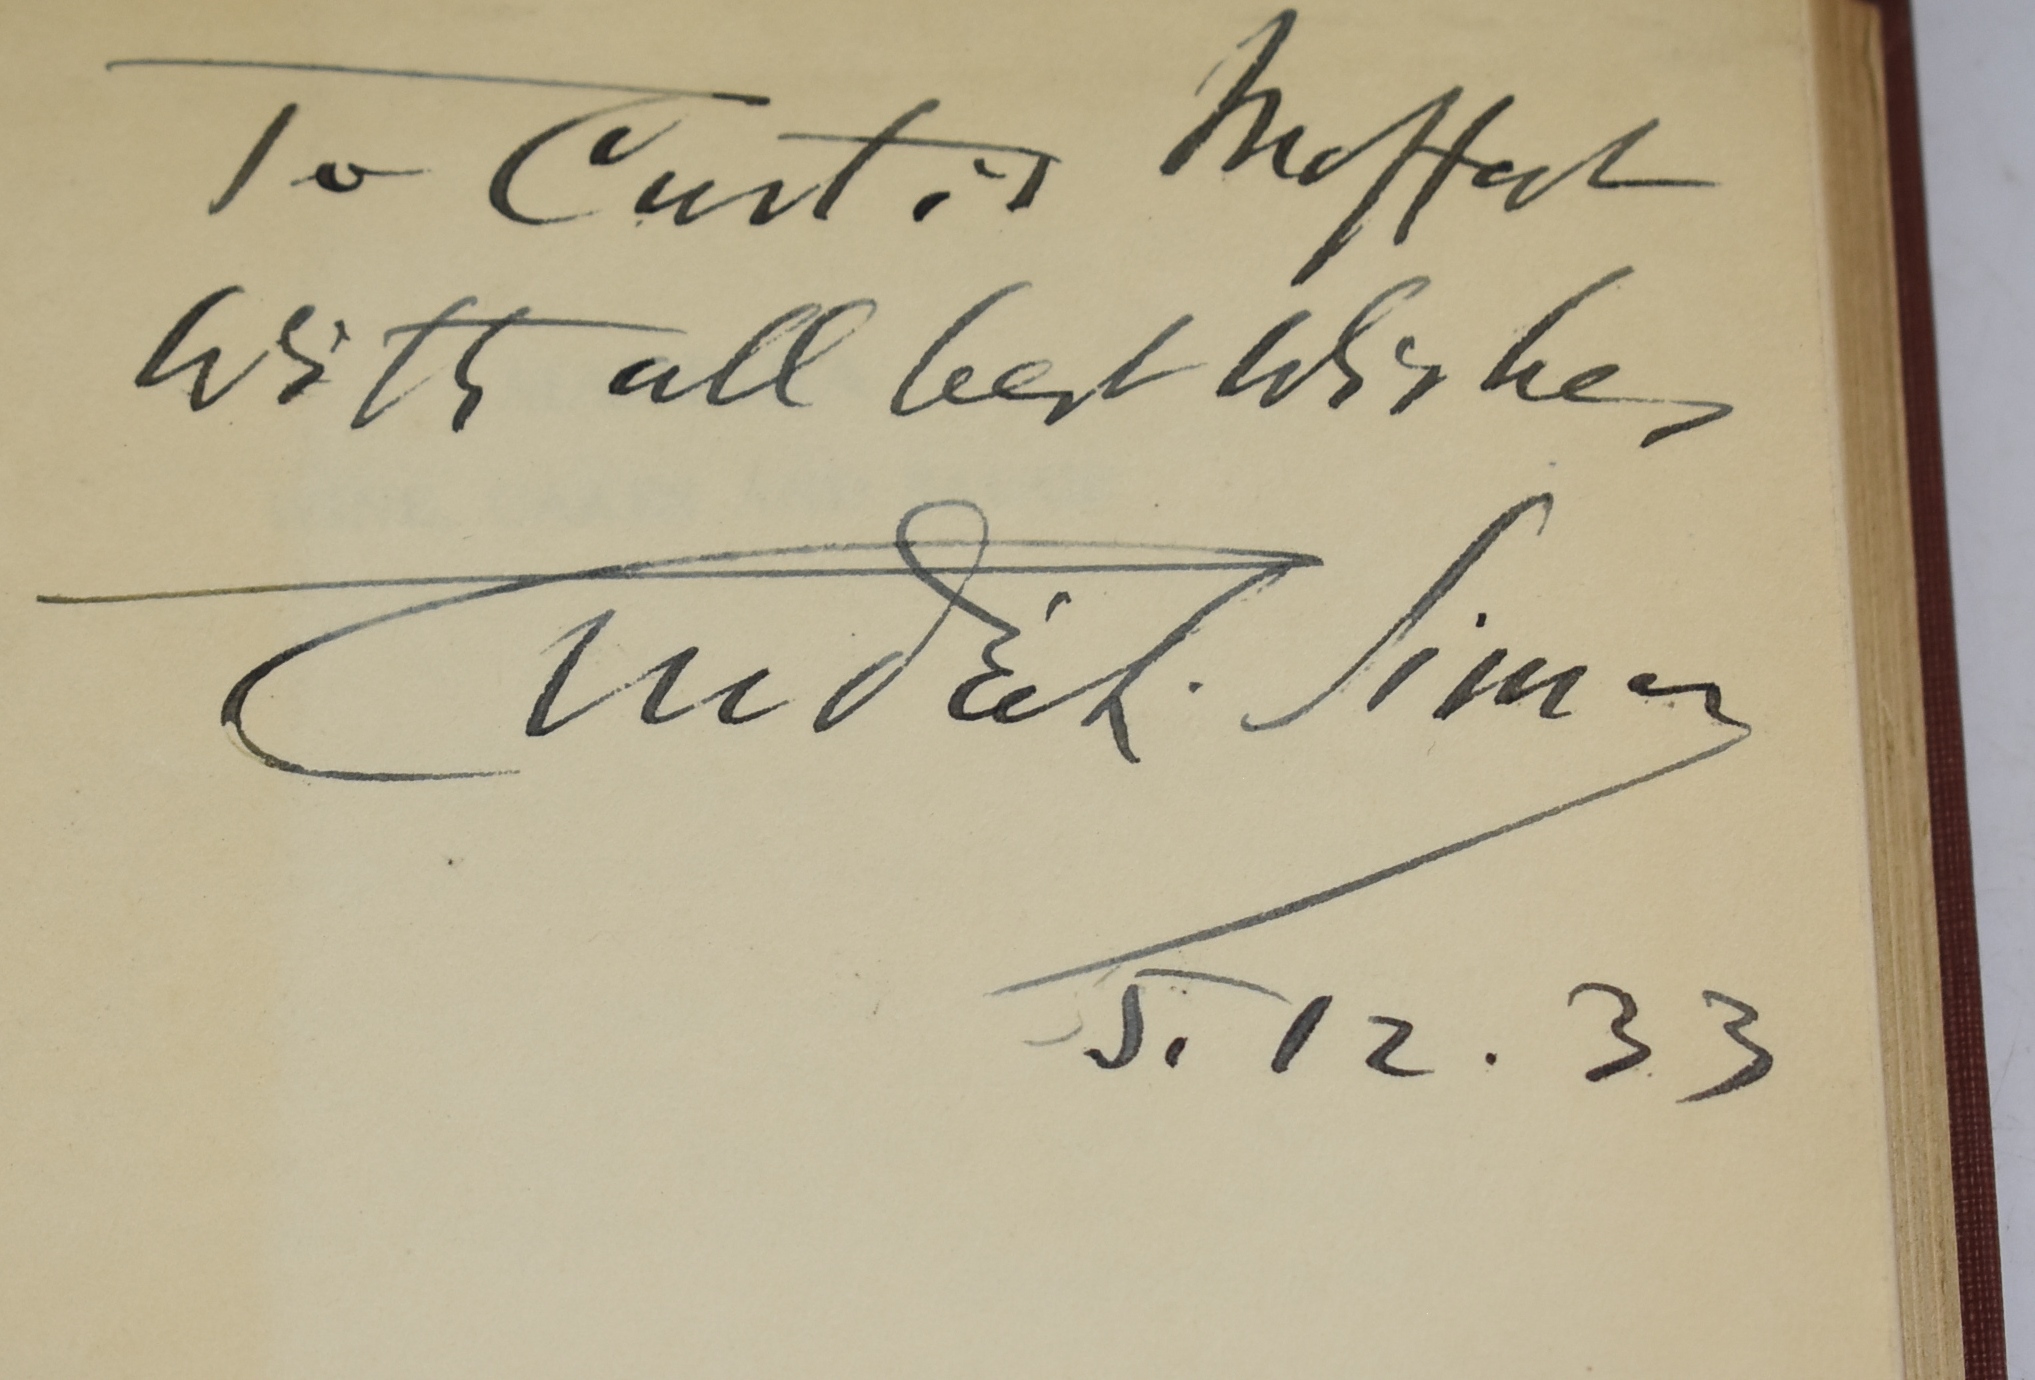 To Curtis Moffat
With all best Wishes
André L. Simon
5. 12. 33